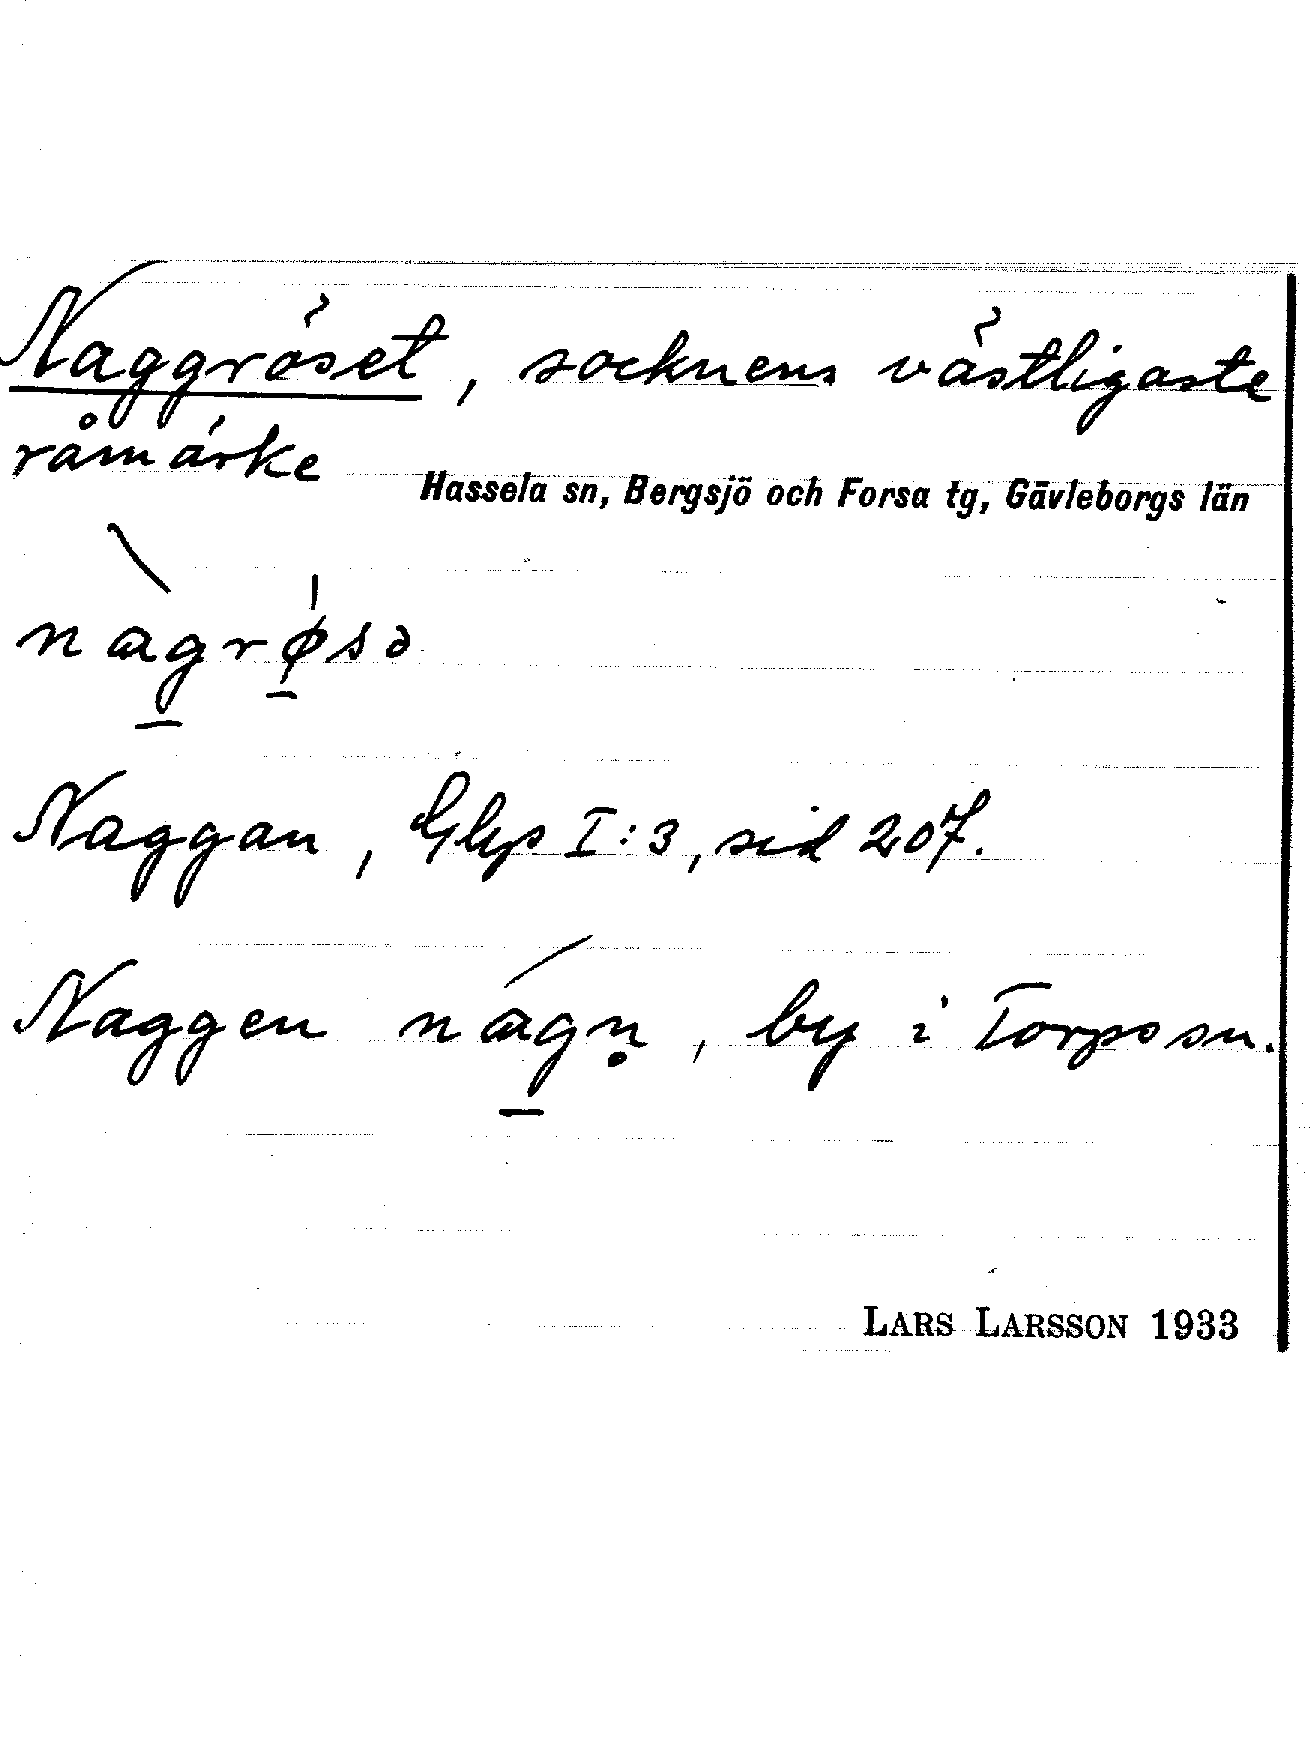 Naggröset, socknens västligaste
råmärke
Hassela sn, Bergsjö och Forsa tg, Gävleborgs län
nàg̱rǿ̱sə
Naggan, Glgs I:3, sid 207.
Naggen nág̱n̥, by i Torps sn.
LARS LARSSON 1933